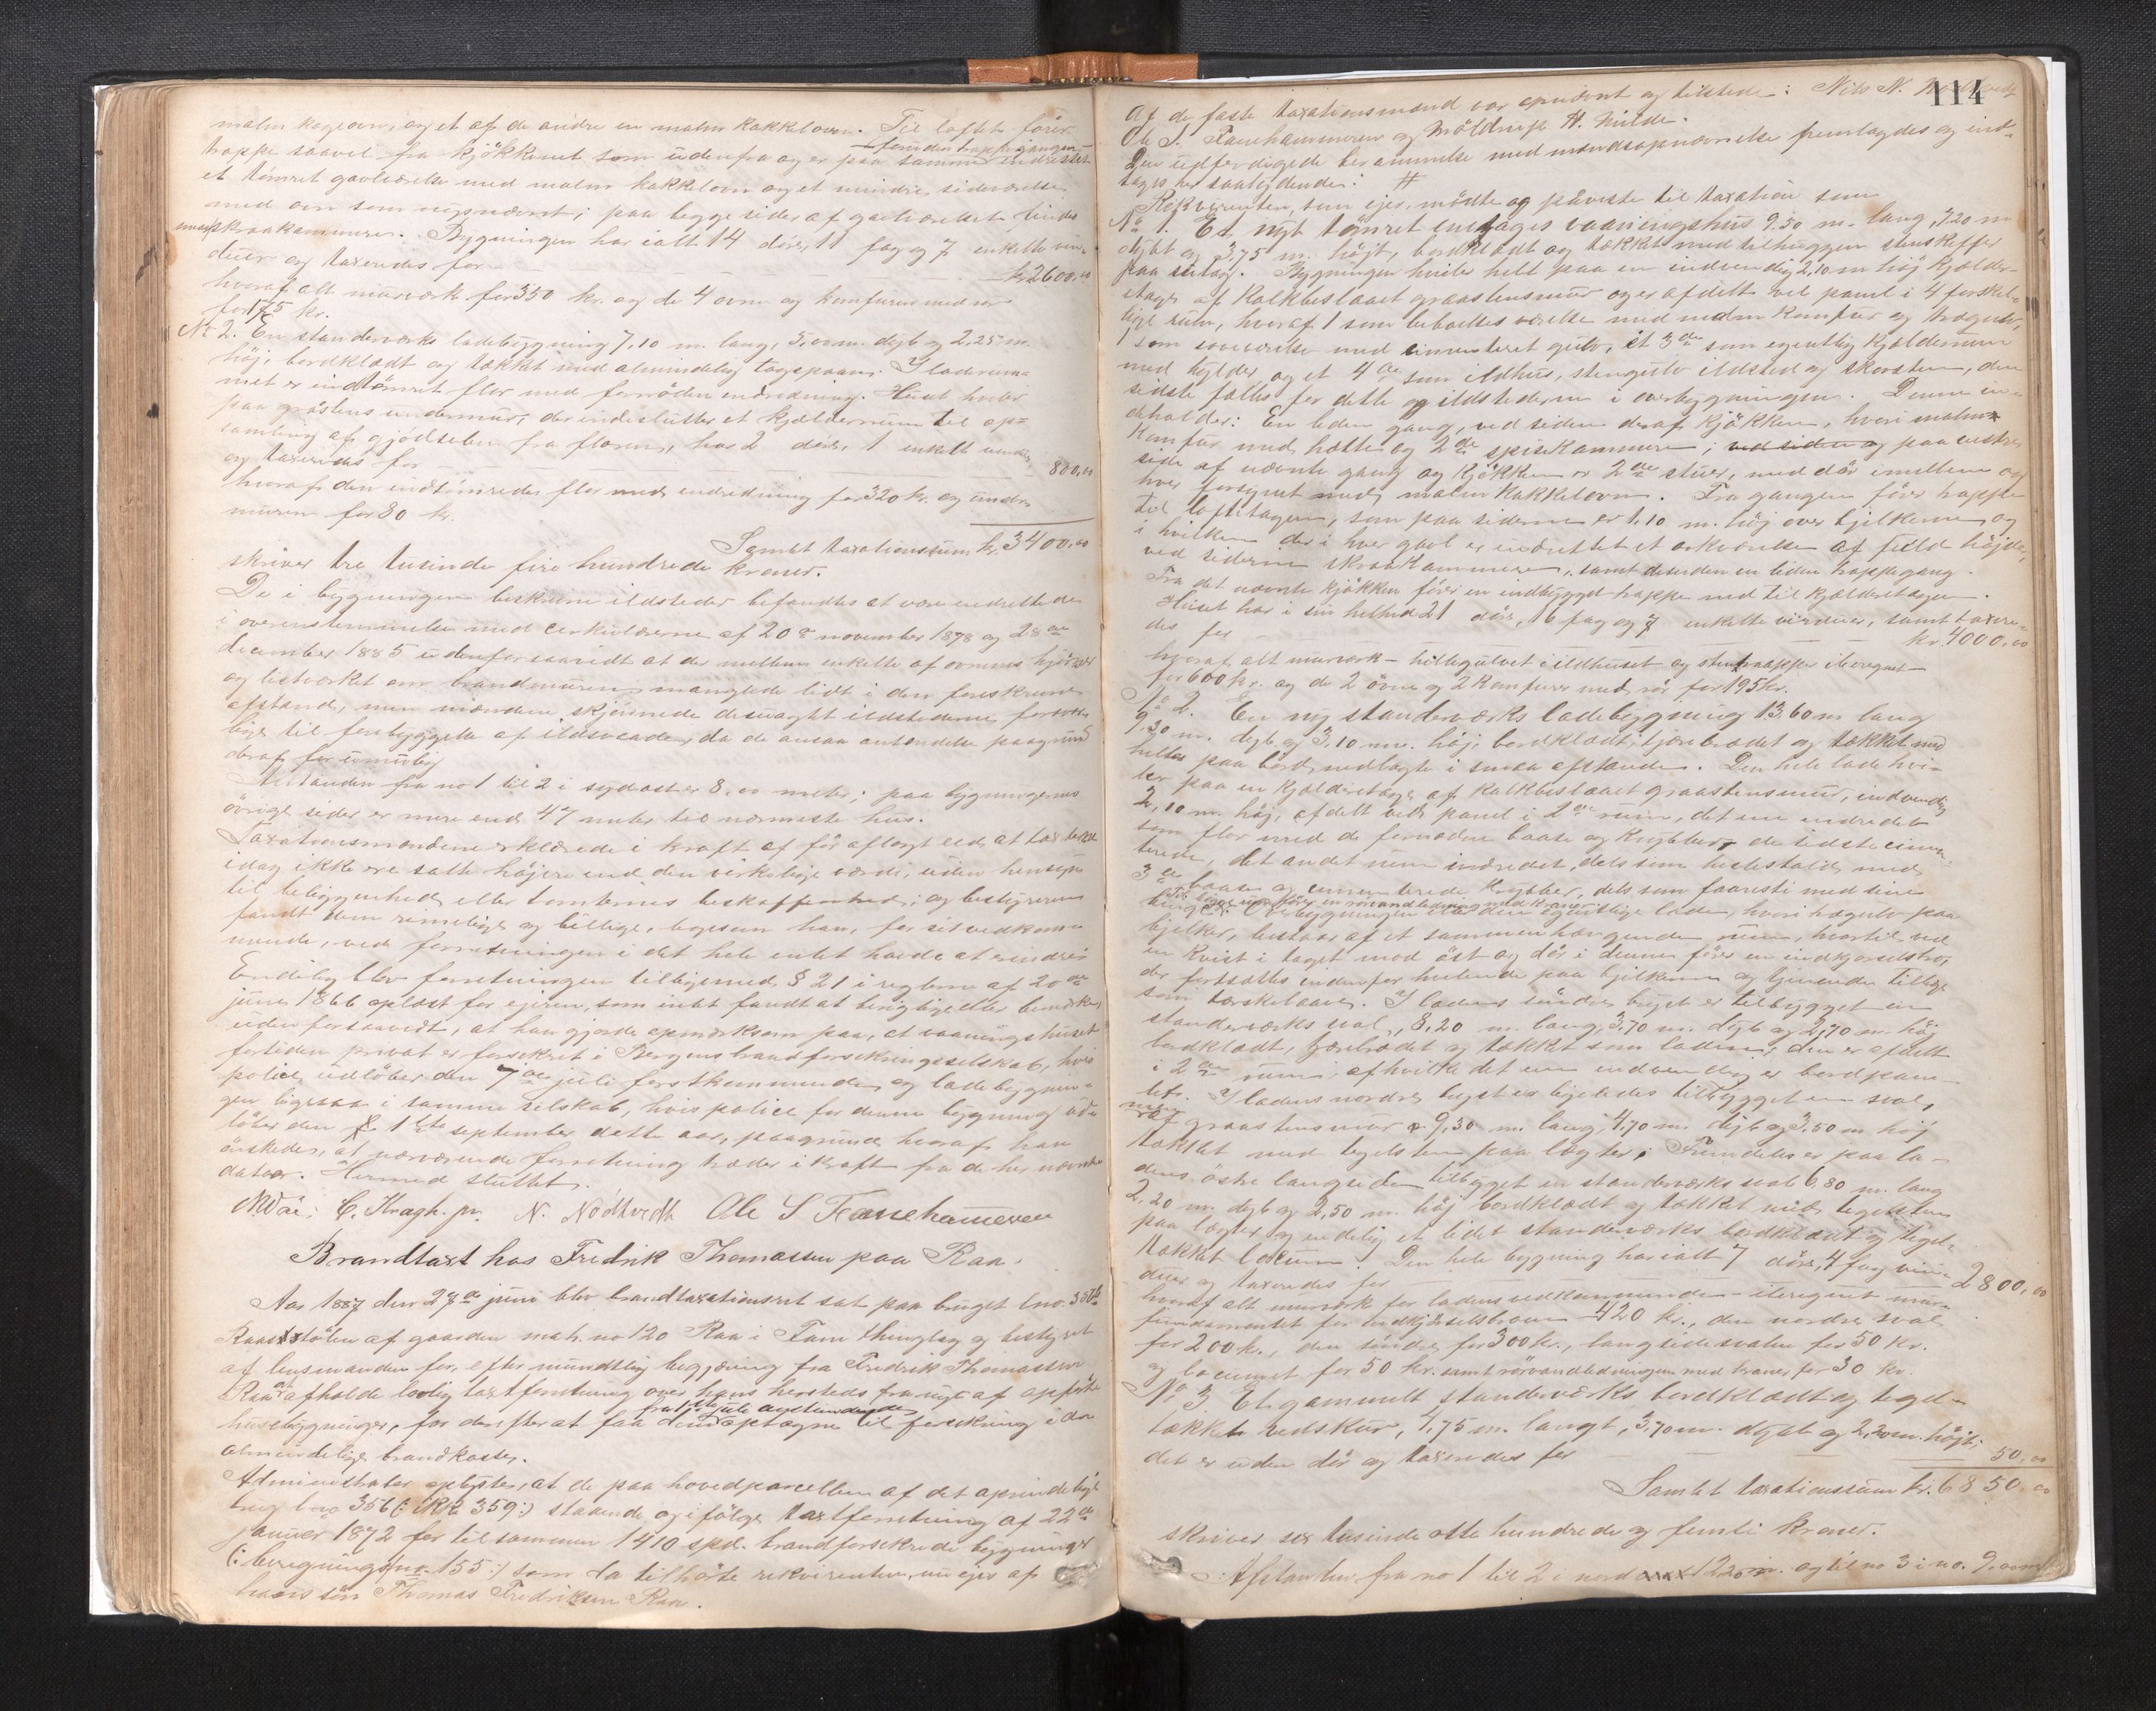 malm kogeovn, og et af de andre en malm kakkelovn. Til loftet fører
trappe saavel fra kjøkkenet som udenfra og er paa samme indrettet
foruden trappegangen
et tømret gavlværelse med malm kakkelovn og et mindre sideværelse
med ovn som nysnævnt; paa begge sider af gavlværelset findes
skraakammere. Bygningen har ialt 14 døre, 11 fag og 7 enkelte vin-
duer og taxeredes for kr. 2600,00
hvoraf alt murværk for 350 kr. og de 4 ovne og komfuren med rør
for 175 kr.
No 2. En standerværks ladebygning 7,10 m. lang, 5,00 m. dyb og 2,25 m.
høj, bordklædt og tækket med almindelig tagspaan. I laderum-
met er indtømret flor med fornøden indredning. Huset hviler
paa gråstens undermur, der indeslutter et kjælderrum til op-
samling af gjødselen fra floren, har 2 døre, 1 enkelt vindu
og taxeredes for 800,00
hvoraf den indtømrede flor med indredning for 320 kr. og under-
muren for 80 kr.
Samlet taxationssum kr. 3400,00
skriver tre tusinde fire hundrede kroner.
De i bygningen beskrevne ildsteder befandtes at være indrettede
i overensstemmelse med cirkulærerne af 20de november 1878 og 28de
december 1885 udenfor saavidt at der mellem enkelte af ovnenes hjørner
og listværket om brandmuren manglede lidt i den foreskrevne
afstand, men mændene skjønnede desuagtet ildstederne forsvar-
lige til forebyggelse af ildsvaade, da de ansaa antændelse paagrund
deraf for umulig
Afstanden fra no 1 til 2 i sydost er 8,00 meter; paa bygningernes
øvrige sider er mere end 47 meter til nærmeste hus.
Taxationsmændene erklærede i kraft af før aflagt eed, at taxterne
idag ikke ere satte højere end den virkelige værdi, uden hensyn
til beliggenhed eller tomternes beskaffenhed; og bestyreren
fandt dem rimelige og billige, ligesom han, for sit vedkom-
mende, ved forretningen i det hele intet havde at erindre
Endelig blev forretningen tilligemed § 21 i reglerne af 20de
juni 1866 oplæst for ejeren, som intet fandt at berigtige eller bemærke,
udenforsaavidt, at han gjorde opmærksom paa, at vaaningshuset
fortiden privat er forsikret i Bergens brandforsikringsselskab, hvis
police udløber den 7de juli førstkommende og ladebygnin-
gen ligesaa i samme selskab, hvis police for denne bygning ud-
løber den 1ste september dette aar, paagrund hvoraf han
ønskede, at nærværende forretning træder i kraft fra de her nævnte
datoer. Hermed sluttet.
C. Kragh. jr. N. Nödtvedt Ole S Fanehameren
Brandtaxt hos Fredrik Thomassen paa Raa.
Aar 1887 den 27de juni blev brandtaxationsret sat paa bruget lno. 356b
Raastølen af gaarden mat. no 120 Raa i Fane thinglag og bestyret
af lensmanden for, efter mundtlig begjæring fra Fredrik Thomassen
Raa at afholde lovlig taxtforretning over hans hersteds fra nyt af opførte
husebygninger, for derefter at faa dem optagne til forsikring i den
fra 1ste juli anstundende
almindelige brandkasse.
Administrator oplyste, at de paa hovedparcellen af det oprindelige
brug lno 356 (: 359:) staaende og ifølge taxtforretning af 22de
januar 1872 for tilsammen 1410 spd. brandforsikrede bygninger
(: beregningsno. 155:) som da tilhørte rekvirenten, nu ejes af
hans søn Thomas Fredriksen Raa.
114
Af de faste taxationsmænd var opnævnt og tilstede: Nils N.
Ole S. Fanehammeren og Møldrup H. Milde.
Den udfærdigede berammelse med mandsopnævnelse fremlagdes og ind-
tages her saalydende: #
Rekvirenten, som ejer, mødte og påviste til taxation som
No 1. Et nyt tømret entages vaaningshus 9,50 m. lang, 7,20 m
dybt og 3,75 m. højt, bordklædt og tækket med tilhuggen stenskiffer
paa sutag. Bygningen hviler helt paa en indvendig 2,10 m høj kjælder-
etage af kalkbeslaaet graastensmur og er afdelt ved panel i 4 forskjel-
lige rum, hvoraf 1 som beboelses værelse med malm komfur og trægulv,
1 som soveværelse med cementeret gulv, et 3de som egentlig kjælderrum
med hylder og et 4de som ildhus, stengulv ildsted og skorsten, den
sidste fælles for dette og ildstederne i overbygningen. Denne in-
deholder: En liden gang, ved siden deraf kjøkken, hvori malm
komfur med hætte og 2de spisekammere; ved siden og paa venstre
side af nævnte gang og kjøkken er 2de stuer, med dør imellem og
hver forsynet med malm kakkelovn. Fra gangen fører trappe
til loftetagen, som paa siderne er 1,10 m. høj over bjelkerne og
i hvilken der i hver gavl er indrettet et arkværelse af fuld højde,
ved siderne skraakammere, samt desuden en liden trappegang.
Fra det nævnte kjøkken fører en indbygget trappe ned til kjælderetagen.
Huset har i sin helhed 21 døre, 16 fag og 7 enkelte vinduer, samt taxere-
des for kr. 4000,00
hvoraf alt murværk - hellegulvet i ildhuset og stentrappe iberegnet -
for 600 kr. og de 2 ovne og 2 komfurer med rør for 195 kr.
No 2. En ny standerværks ladebygning 13,60 m lang
9,30 m. dyb og 3,10 m. høj, bordklædt, tjærebrædet og tækket med
heller paa bord, nedlagte i smaa afstande. Den hele lade hvi-
ler paa en kjælderetage af kalkbeslaaet graastensmur, indvendig
2,10 m. høj, afdelt ved panel i 2de rum, det ene indredet
som flor med de fornødne baase og krybber, de sidste cemen-
terede, det andet rum indredet, dels som hestestald med
3de baase og cementerede krybber, dels som faaresti med sine
til begge rum fører en rørvandledning med kraner
Overbygningen eller den egentlige lade, hvori trægulv paa
bjelker, bestaar af et sammenhængende rum, hvortil ved
en kvist i taget mod øst og dør i denne fører en indkjørselsbro,
der fortsættes indenfor hvilende paa bjelkerne og tjenende tillige
som tærskelaave. I ladens søndre bryst er tilbygget en
standerværks sval, 8,20 m. lang, 3,70 m. dyb og 2,70 m. høj
bordklædt, tjærebrædet og tækket som laden; den er afdelt
i 2de rum, af hvilke det ene indvendig er bordpane-
let. I ladens nordre bryst er ligeledes tilbygget en sval,
af graastensmur 9,30 m. lang, 4,70 m. dyb og 3,50 m høj
tækket med teglsten paa lægter. Fremdeles er paa la-
dens østre langside tilbygget en standerværks sval 6,80 m. lang
2,20 m. dyb og 2,50 m. høj bordklædt og tækket med teglsten
paa lægter og endelig et lidet standerværks bordklædt og tegl-
tækket locum. Den hele bygning har ialt 7 døre, 4 fag vin-
duer og taxeredes for 2800,00
hvoraf alt murværk for ladens vedkommende - iberegnet mur-
fundamentet for indkjørselsbroen 420 kr., den nordre sval
for 200 kr., den søndre for 300 kr., langsidesvalen for 50 kr.
og locumet for 50 kr. samt rørvandledningen med kraner for 30 kr.
No 3. Et gammelt standerværks bordklædt og tegl-
tækket vedskur, 4,75 m. langt, 3,70 m. dybt og 2,20 m. højt;
det er uden dør og taxeredes for 50,00
Samlet taxationssum kr. 6850,00
skriver sex tusinde otte hundrede og femti kroner.
Afstanden fra no 1 til 2 i nord 12,20 m. og til no 3 i no. 9,00 m